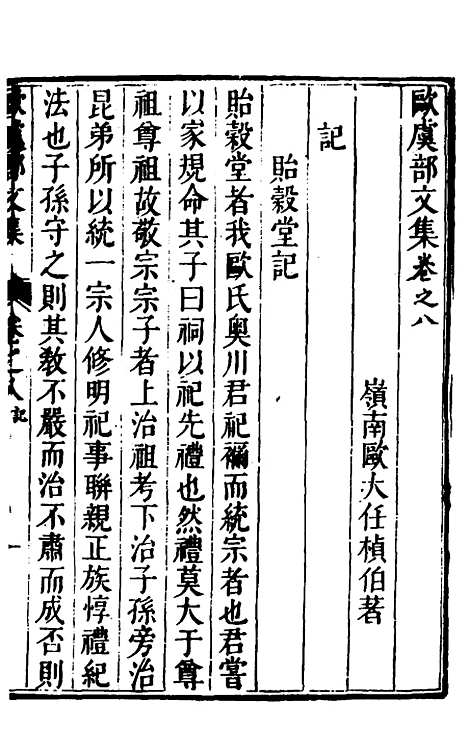 歐虞部文集卷之八
嶺南歐大任楨伯著
記
貽穀堂記
貽穀堂者我歐氏奧川君祀禰而統宗者也君嘗
以家規命其子曰祠以祀先禮也然禮莫大于尊
祖尊祖故敬宗宗子者上治祖考下治子孫旁治
昆弟所以統一宗人修明祀事聯親正族惇禮紀
法也子孫守之則其教不嚴而治不肅而成否則
歐虞部文集
卷之八 記
一